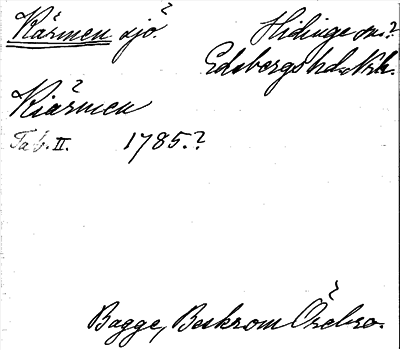 Kärmen sjö? Hidinge sn.?
Edsbergs hd. Nrk.
Kiärmen
Tab. II. 1785.?
Bagge, Beskrom Örebro.